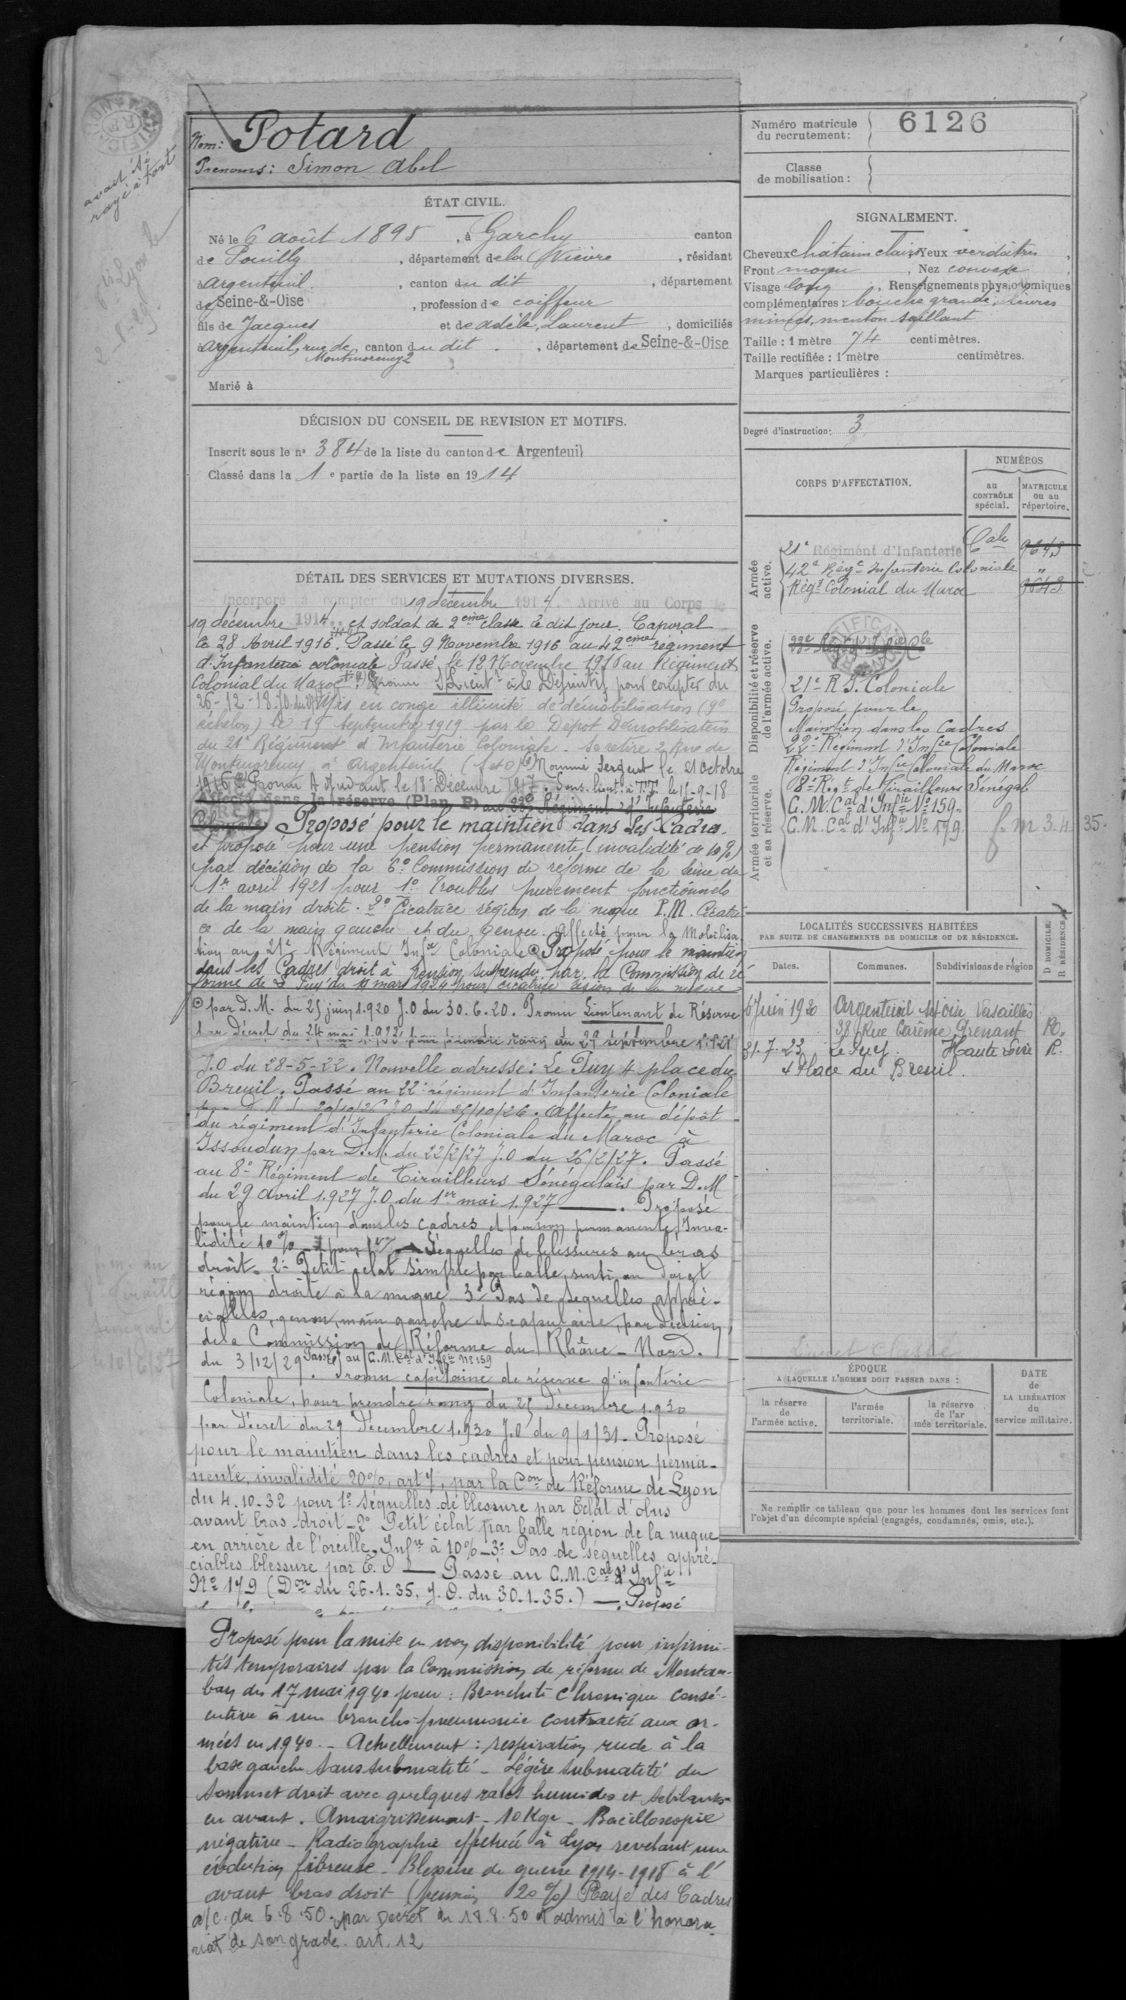 avait été
rayé à tort
Nom: Potard
Prénoms: Simon Abel
ÉTAT CIVIL.
Né le 6 août 1895, à Garchy canton
de Pouilly, département de la Nièvre, résidant
à Argenteuil, canton du dit, département
de Seine-&-Oise, profession de coiffeur
fils de Jacques et de Adèle, Laurent, domiciliés
à Argenteuil, rue de Montmorency 2 canton du dit, département de Seine-&-Oise
Marié à
DÉCISION DU CONSEIL DE REVISION ET MOTIFS.
Inscrit sous le n° 384 de la liste du canton de Argenteuil
Classé dans la 1e partie de la liste en 1914
DÉTAIL DES SERVICES ET MUTATIONS DIVERSES.
Incorporé à compter du 19 décembre 1914. Arrivé au Corps le
19 décembre 1914 et soldat de 2ème classe le dit jour. Caporal
le 28 Avril 1916. Passé le 9 Novembre 1916 au 42ème régiment
d'Infanterie coloniale Passé le 12 Novembre 1916 au Régiment
Colonial du Maroc. Promu S/Lieutt à le Définitif pour compter du
26-12-18. Mis en congé illimité de démobilisation (9e
échelon) le 15 Septembre 1919 par le Dépôt Démobilisateur
du 21e Régiment d'Infanterie Coloniale - Se retire 2 Rue de
Montmorency à Argenteuil (S et O) Nommé Sergent le 21 Octobre
1916 Promu Adjudant le 18 Décembre 1917. Sous-lieut. à T.T. le 15-9-18
Affecté dans la réserve (Plan P) au 33e Régiment d'Infanterie
Coloniale Proposé pour le maintien dans les Cadres
et proposé pour une pension permanente (invalidité de 10%)
par décision de la 6e Commission de réforme de la Seine du
1er avril 1921 pour 1° Troubles purement fonctionnels
de la main droite. 2° Cicatrice région de la nuque P.M. Cicatri
ce de la main gauche et du genou. Affecté pour la Mobilisa
tion au 21e Régiment Infie Coloniale Proposé pour le maintien
dans les Cadres droit à pension suspendu par la Commission de ré
forme de Le Puy du mars 1924 pour cicatrice région de la nuque
par D.M. du 25 juin 1920 J.O du 30.6.20. Promu Lieutenant de Réserve
par Décret du 24 mai 1922 pour prendre rang du 29 septembre 1921
J.O du 28-5-22. Nouvelle adresse: Le Puy 4 place du
Breuil. Passé au 22e régiment d'Infanterie Coloniale
par D.M. 20/10/26 J.O du 25/10/26. Affecté au dépôt
du régiment d'Infanterie Coloniale du Maroc à
Issoudun par D.M. du 22/2/27 J.O du 26/2/27. Passé
au 8e Régiment de Tirailleurs Sénégalais par D.M
du 29 avril 1927 J.O du 1er mai 1927 —. Proposé
pour le maintien dans les cadres et pension permanente, Inva-
lidité 10% pour 1° Séquelles de blessures au bras
droit. 2° Petit éclat simple par balle, senti au doigt
région droite à la nuque 3° Pas de séquelles appré-
ciables, genou, main gauche et scapulaire, par décision
de la Commission de Réforme du Rhône-Nord.
du 3/12/29 Passé au C.M. Cal d'Infie N° 159
Promu capitaine de réserve d'infanterie
Coloniale, pour prendre rang du 25 décembre 1930
par Décret du 29 Décembre 1930 J.O du 9/1/31. Proposé
pour le maintien dans les cadres et pour pension perma-
nente, invalidité 20%, art 7, par la Con de Réforme de Lyon
du 4.10.32 pour 1° séquelles de blessure par éclat d'obus
avant bras droit - 2° Petit éclat par balle région de la nuque
en arrière de l'oreille, Infre à 10% - 3° Pas de séquelles appré-
ciables blessure par E.O — Passé au C.M. Cal d'Infie
N° 179 (Don du 26.1.35, J.O. du 30.1.35.) —. Proposé
Proposé pour la mise en non disponibilité pour infirmi-
tés temporaires par la Commission de réforme de Montau-
ban du 17 mai 1940 pour: Bronchite chronique consé-
cutive à une broncho-pneumonie contractée aux ar-
mées en 1940. - Actuellement: respiration rude à la
base gauche sans submatité - Légère submatité du
sommet droit avec quelques rales humides et sibilants
en avant. Amaigrissement - 10 Kgr - Bacilloscopie
négative - Radiographie effectuée à Lyon révélant une
évolution fibreuse - Blessure de guerre 1914-1918 à l'
avant bras droit (pension 20%) Rayé des Cadres
a/c. du 6.8.50. par Décret du 18.8.50 et admis à l'honora
riat de son grade. art. 12
Numéro matricule du recrutement: 6126
Classe de mobilisation:
SIGNALEMENT.
Cheveux châtain clair Yeux verdâtres,
Front moyen, Nez convexe,
Visage long, Renseignements physionomiques
complémentaires: bouche grande, lèvres
minces, menton saillant
Taille: 1 mètre 74 centimètres.
Taille rectifiée: 1 mètre centimètres.
Marques particulières:
Degré d'instruction: 3
CORPS D'AFFECTATION.
NUMÉROS
au CONTRÔLE spécial.
MATRICULE ou au répertoire.
Armée active.
21e Régiment d'Infanterie Cale 9643
42e Régt Infanterie Coloniale "
Régt Colonial du Maroc 9643
Disponibilité et réserve de l'armée active.
21e R.I. Coloniale
Proposé pour le
Maintien dans les Cadres
22e Régiment d'Infie Coloniale
Régiment d'Infie Coloniale du Maroc
8e Régt de Tirailleurs Sénégal
C.M. Cal d'Infie N° 159.
C.M. Cal d'Infie N° 179.
Armée territoriale et sa réserve.
LOCALITÉS SUCCESSIVES HABITÉES
PAR SUITE DE CHANGEMENTS DE DOMICILE OU DE RÉSIDENCE.
Dates.
Communes.
Subdivisions de région
D DOMICILE.
R RÉSIDENCE.
6 Juin 1920 Argenteuil S et Oise Versailles
38 Rue Carême Prenant R.
31.7.23 Le Puy. Haute Loire R.
4 Place du Breuil.
ÉPOQUE
A LAQUELLE L'HOMME DOIT PASSER DANS:
la réserve de l'armée active.
l'armée territoriale.
la réserve de l'armée territoriale.
DATE de LA LIBÉRATION du service militaire.
Ne remplir ce tableau que pour les hommes dont les services font
l'objet d'un décompte spécial (engagés, condamnés, omis, etc.).